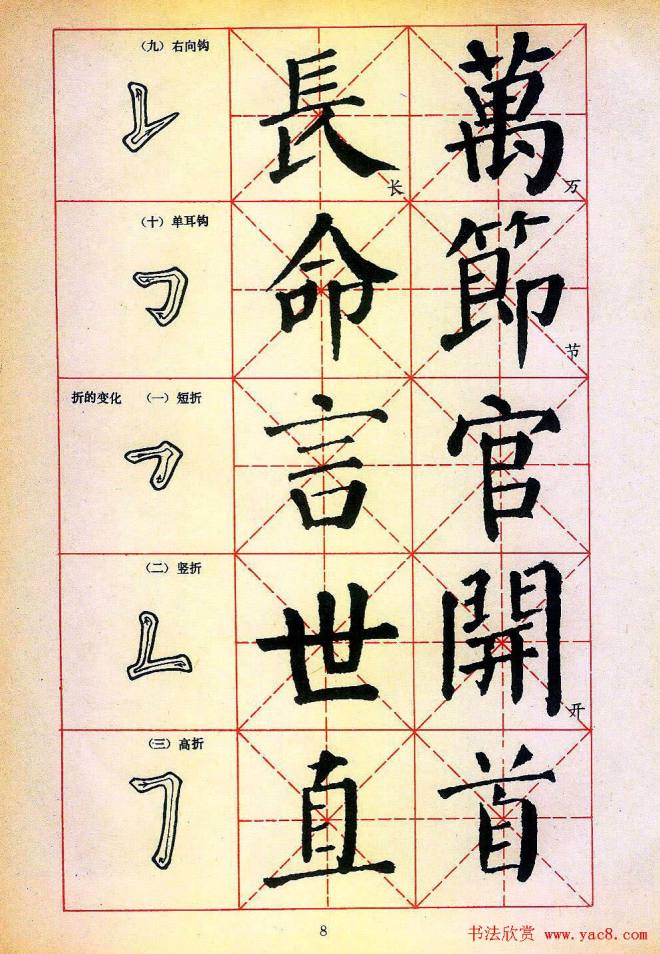 （九）右向钩
長 萬
长 万
（十）单耳钩
命 節
节
折的变化 （一）短折
言 官
（二）竖折
世 開
开
（三）高折
直 首
8
书法欣赏 www.yac8.com